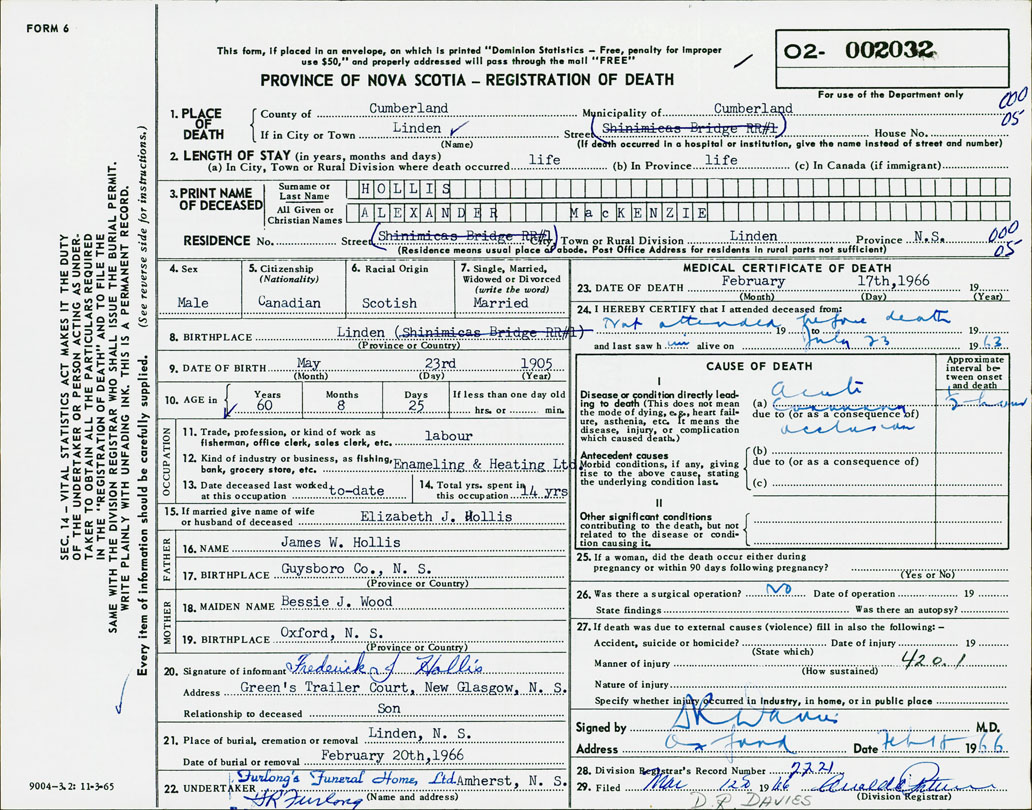 FORM 6
This form, if placed in an envelope, on which is printed "Dominion Statistics – Free, penalty for improper
use $50," and properly addressed will pass through the mail "FREE"
PROVINCE OF NOVA SCOTIA – REGISTRATION OF DEATH
02- 002032
For use of the Department only
000
05
1. PLACE OF DEATH
County of Cumberland Municipality of Cumberland
If in City or Town Linden Street Shinimicas Bridge RR#1 House No.
(Name) (If death occurred in a hospital or institution, give the name instead of street and number)
2. LENGTH OF STAY (in years, months and days)
(a) In City, Town or Rural Division where death occurred life (b) In Province life (c) In Canada (if immigrant)
3. PRINT NAME OF DECEASED
Surname or Last Name HOLLIS
All Given or Christian Names ALEXANDER MacKENZIE
RESIDENCE No. Street Shinimicas Bridge RR#1 City, Town or Rural Division Linden Province N.S.
(Residence means usual place of abode. Post Office Address for residents in rural parts not sufficient)
000
05
4. Sex
Male
5. Citizenship
(Nationality)
Canadian
6. Racial Origin
Scotish
7. Single, Married,
Widowed or Divorced
(write the word)
Married
8. BIRTHPLACE Linden (Shinimicas Bridge RR#1)
(Province or Country)
9. DATE OF BIRTH May 23rd 1905
(Month) (Day) (Year)
10. AGE in
Years Months Days If less than one day old
60 8 25 hrs. or min.
OCCUPATION
11. Trade, profession, or kind of work as
fisherman, office clerk, sales clerk, etc. labour
12. Kind of industry or business, as fishing,
bank, grocery store, etc. Enameling & Heating Ltd.
13. Date deceased last worked
at this occupation to-date
14. Total yrs. spent in
this occupation 14 yrs
15. If married give name of wife
or husband of deceased Elizabeth J. Hollis
FATHER
16. NAME James W. Hollis
17. BIRTHPLACE Guysboro Co., N. S.
(Province or Country)
MOTHER
18. MAIDEN NAME Bessie J. Wood
19. BIRTHPLACE Oxford, N. S.
(Province or Country)
20. Signature of informant Frederick J Hollis
Address Green's Trailer Court, New Glasgow, N. S.
Relationship to deceased Son
21. Place of burial, cremation or removal Linden, N. S.
Date of burial or removal February 20th,1966
22. UNDERTAKER Furlong's Funeral Home, Ltd. Amherst, N. S.
(Name and address)
MEDICAL CERTIFICATE OF DEATH
23. DATE OF DEATH February 17th,1966 19
(Month) (Day) (Year)
24. I HEREBY CERTIFY that I attended deceased from:
Not attended before death
19 to 19
and last saw h im alive on July 23 1963
CAUSE OF DEATH
Approximate
interval be-
tween onset
and death
I
Disease or condition directly lead-
ing to death (This does not mean
the mode of dying, e.g., heart fail-
ure, asthenia, etc. It means the
disease, injury, or complication
which caused death.)
(a) Acute
Coronary
due to (or as a consequence of)
occlusion
½ hour
Antecedent causes
Morbid conditions, if any, giving
rise to the above cause, stating
the underlying condition last.
(b)
due to (or as a consequence of)
(c)
II
Other significant conditions
contributing to the death, but not
related to the disease or condi-
tion causing it.
25. If a woman, did the death occur either during
pregnancy or within 90 days following pregnancy?
(Yes or No)
26. Was there a surgical operation? No Date of operation 19
State findings Was there an autopsy?
27. If death was due to external causes (violence) fill in also the following: –
Accident, suicide or homicide? Date of injury 19
(State which)
Manner of injury 420.1
(How sustained)
Nature of injury
Specify whether injury occurred in Industry, in home, or in public place
Signed by M.D.
Address Oxford Date Feb 18 1966
28. Division Registrar's Record Number 2221
29. Filed Mar 1966
(Division Registrar)
D. R. DAVIES
SEC. 14 – VITAL STATISTICS ACT MAKES IT THE DUTY
OF THE UNDERTAKER OR PERSON ACTING AS UNDER-
TAKER TO OBTAIN ALL THE PARTICULARS REQUIRED
IN THE "REGISTRATION OF DEATH" AND TO FILE THE
SAME WITH THE DIVISION REGISTRAR WHO SHALL ISSUE THE BURIAL PERMIT.
WRITE PLAINLY WITH UNFADING INK. THIS IS A PERMANENT RECORD.
Every item of information should be carefully supplied. (See reverse side for instructions.)
9004–3.2: 11-3-65